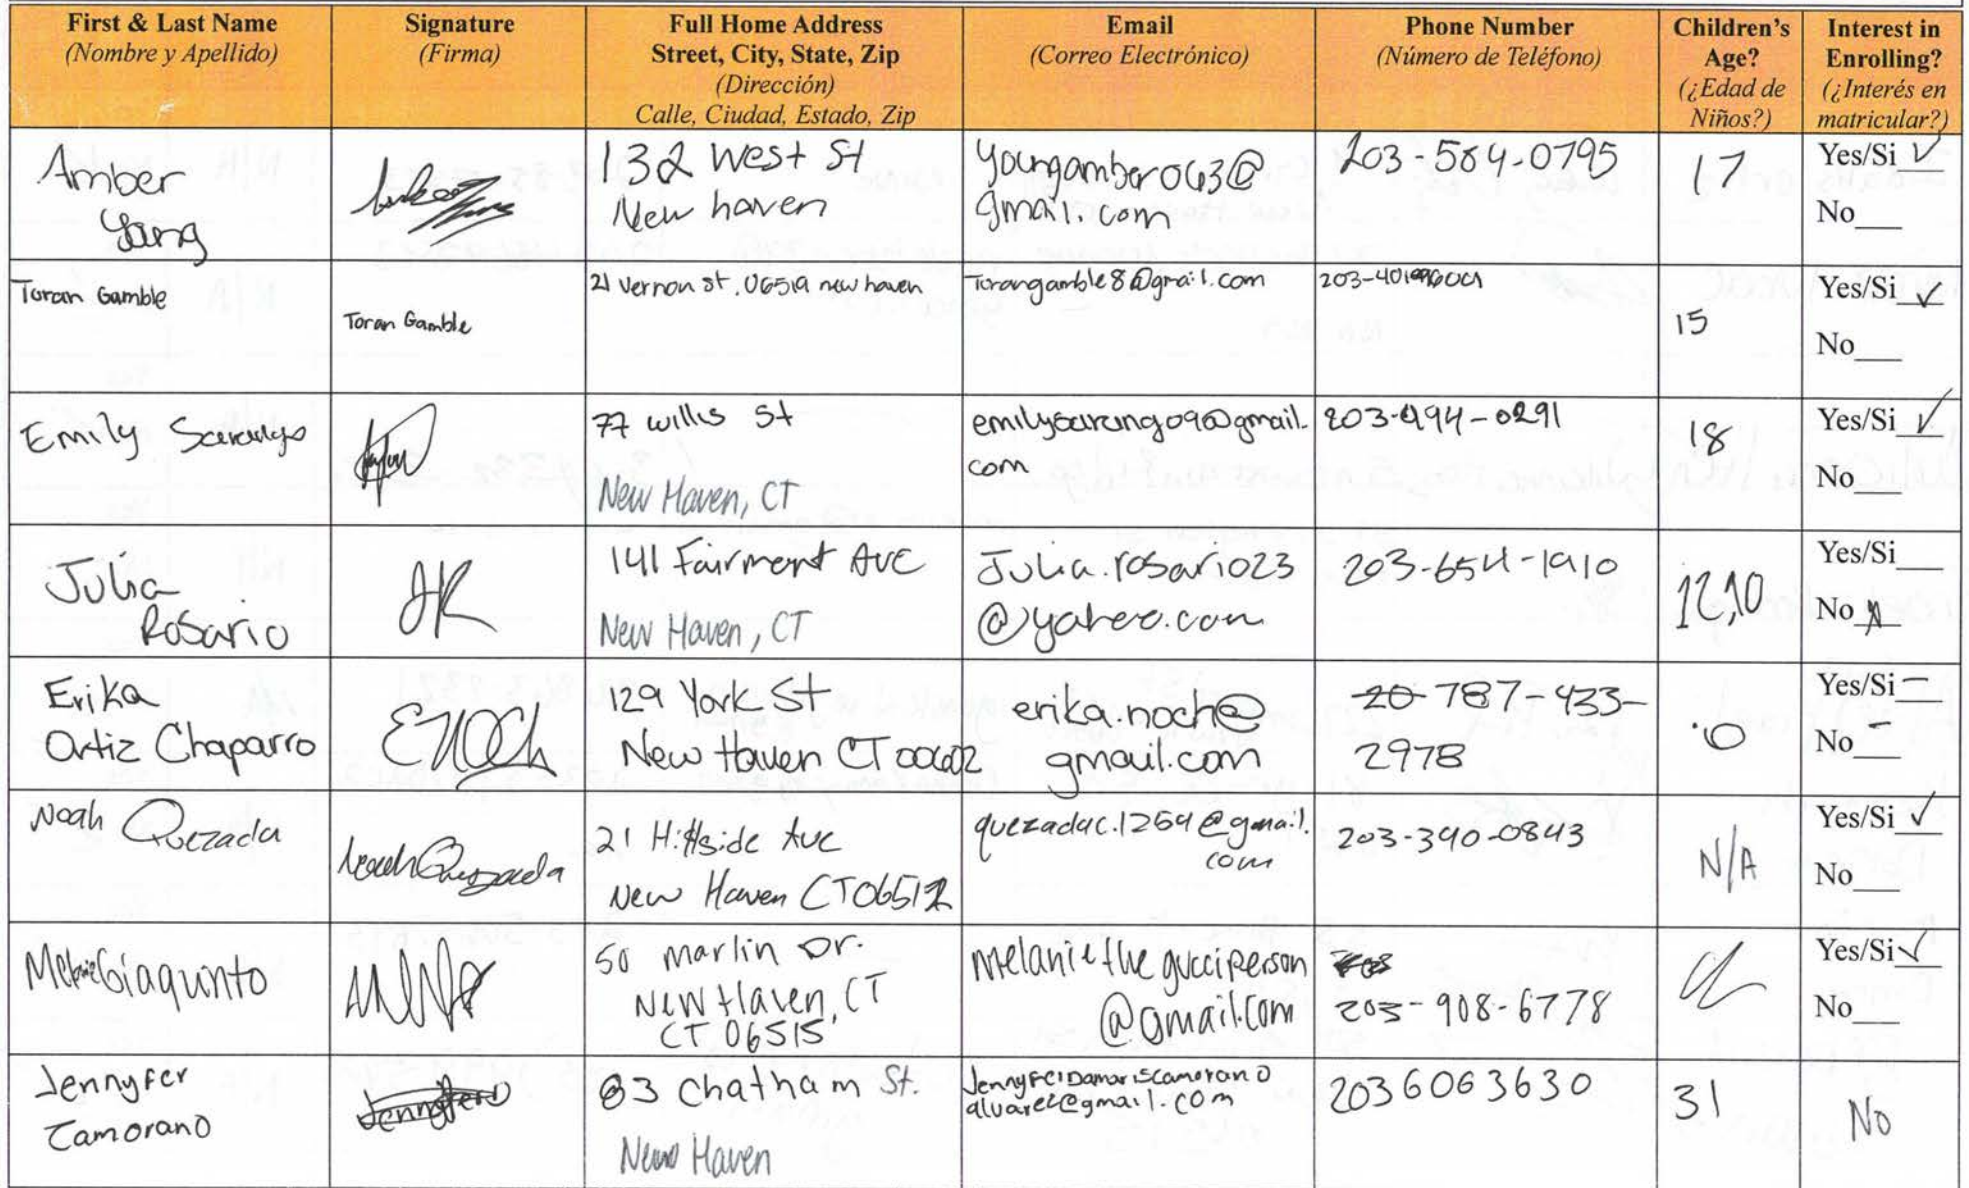 First & Last Name
(Nombre y Apellido)
Signature
(Firma)
Full Home Address
Street, City, State, Zip
(Dirección)
Calle, Ciudad, Estado, Zip
Email
(Correo Electrónico)
Phone Number
(Número de Teléfono)
Children's
Age?
(¿Edad de
Niños?)
Interest in
Enrolling?
(¿Interés en
matricular?)
Amber
Yang
132 West St
New haven
@
gmail.com
203-584-0795
17
Yes/Si ✓
No
Toran Gamble
Toran Gamble
21 Vernon st. 06519 new haven
Torangamble8@gmail.com
15
Yes/Si ✓
No
Emily
77 willis St
New Haven, CT
gmail.
com
203-494-0291
18
Yes/Si ✓
No
Julia
Rosario
JR
141 Fairmont Ave
New Haven, CT
Julia.rosario23
@yahoo.com
203-654-1910
12,10
Yes/Si
No X
Erika
Ortiz Chaparro
129 York St
New Haven CT
erika.noch@
gmail.com
787-433-
2978
0
Yes/Si
No
Noah Quezada
Noah Quezada
21 Hillside Ave
New Haven CT 06512
quezadac.1259@gmail.
com
203-390-0843
N/A
Yes/Si ✓
No
Melanie Giaquinto
50 marlin Dr.
New Haven, CT
CT 06515
melaniethegucciperson
@gmail.com
203-908-6778
Yes/Si ✓
No
Jennyfer
Zamorano
83 Chatham St.
New Haven
2036063630
31
No